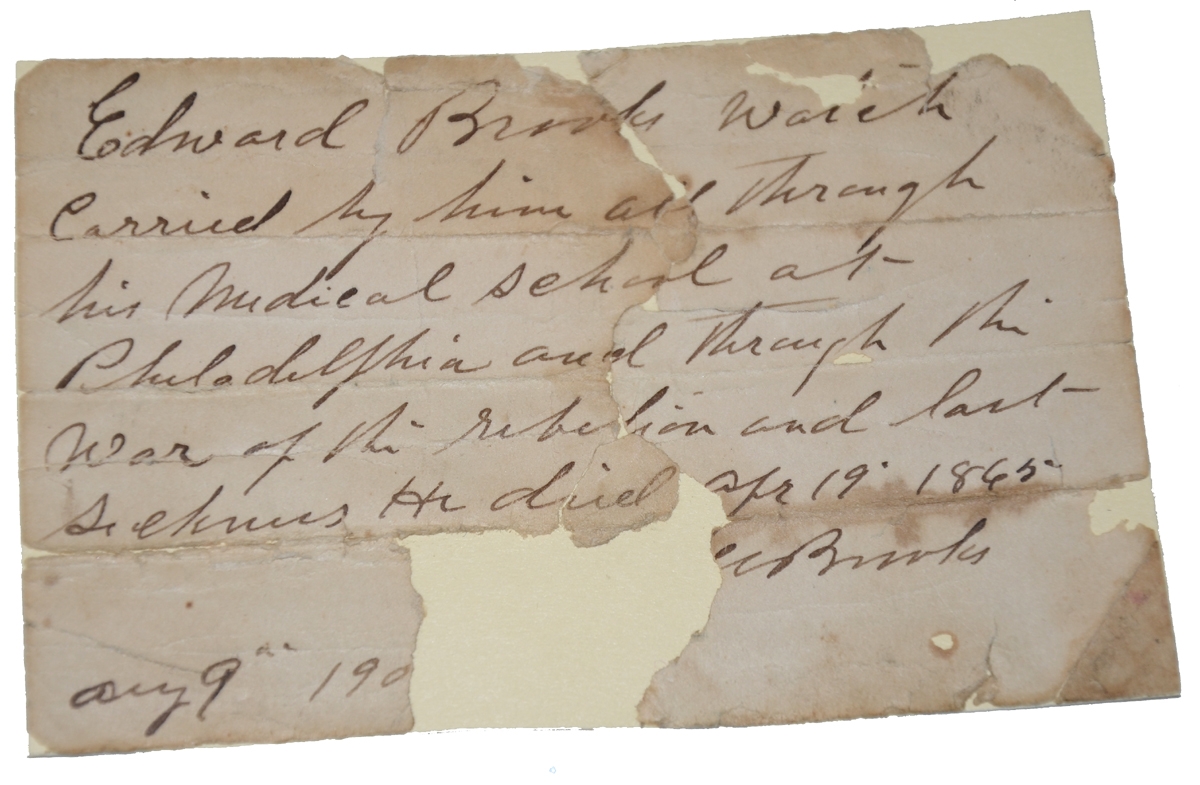 Edward Brooks Watch
Carried by him all through
his Medical School at
Philadelphia and through the
War of the rebelion and last
Sickness He died Apr 19 1865
Brooks
Aug 9th 190